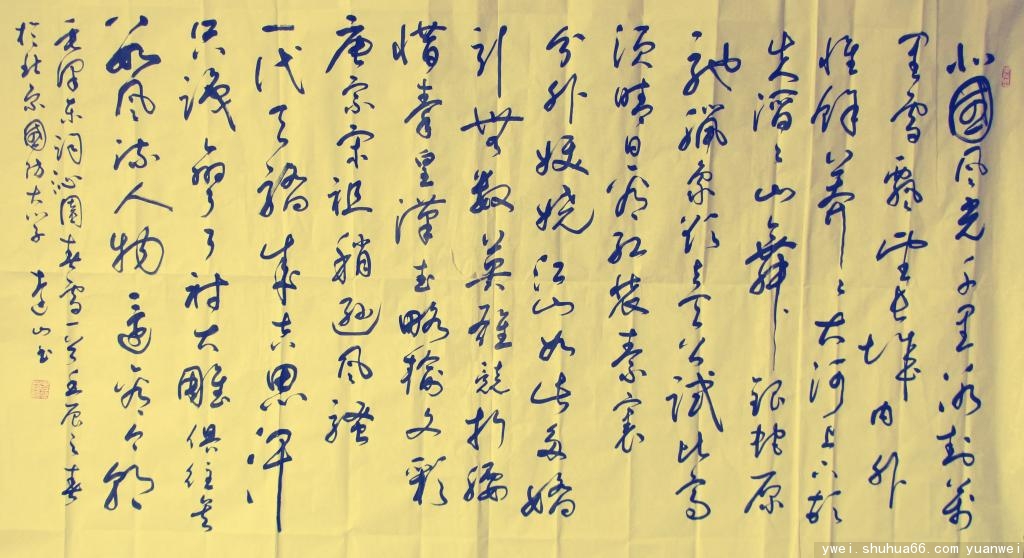 北國风光千里冰封萬
里雪飄望長城内外
惟餘莽〻大河上下頓
失滔〻山舞银蛇原
驰臘象欲与天公試比高
須晴日看红装素裹
分外妖娆江山如此多嬌
引無數英雄競折腰
惜秦皇漢武略輸文彩
唐宗宋祖稍逊风骚
一代天骄成吉思汗
只識彎弓射大雕俱往矣
數风流人物還看今朝
毛泽东词沁園春雪一首壬辰之春
於北京國防大学 山书
ywei.shuhua66.com yuanwei